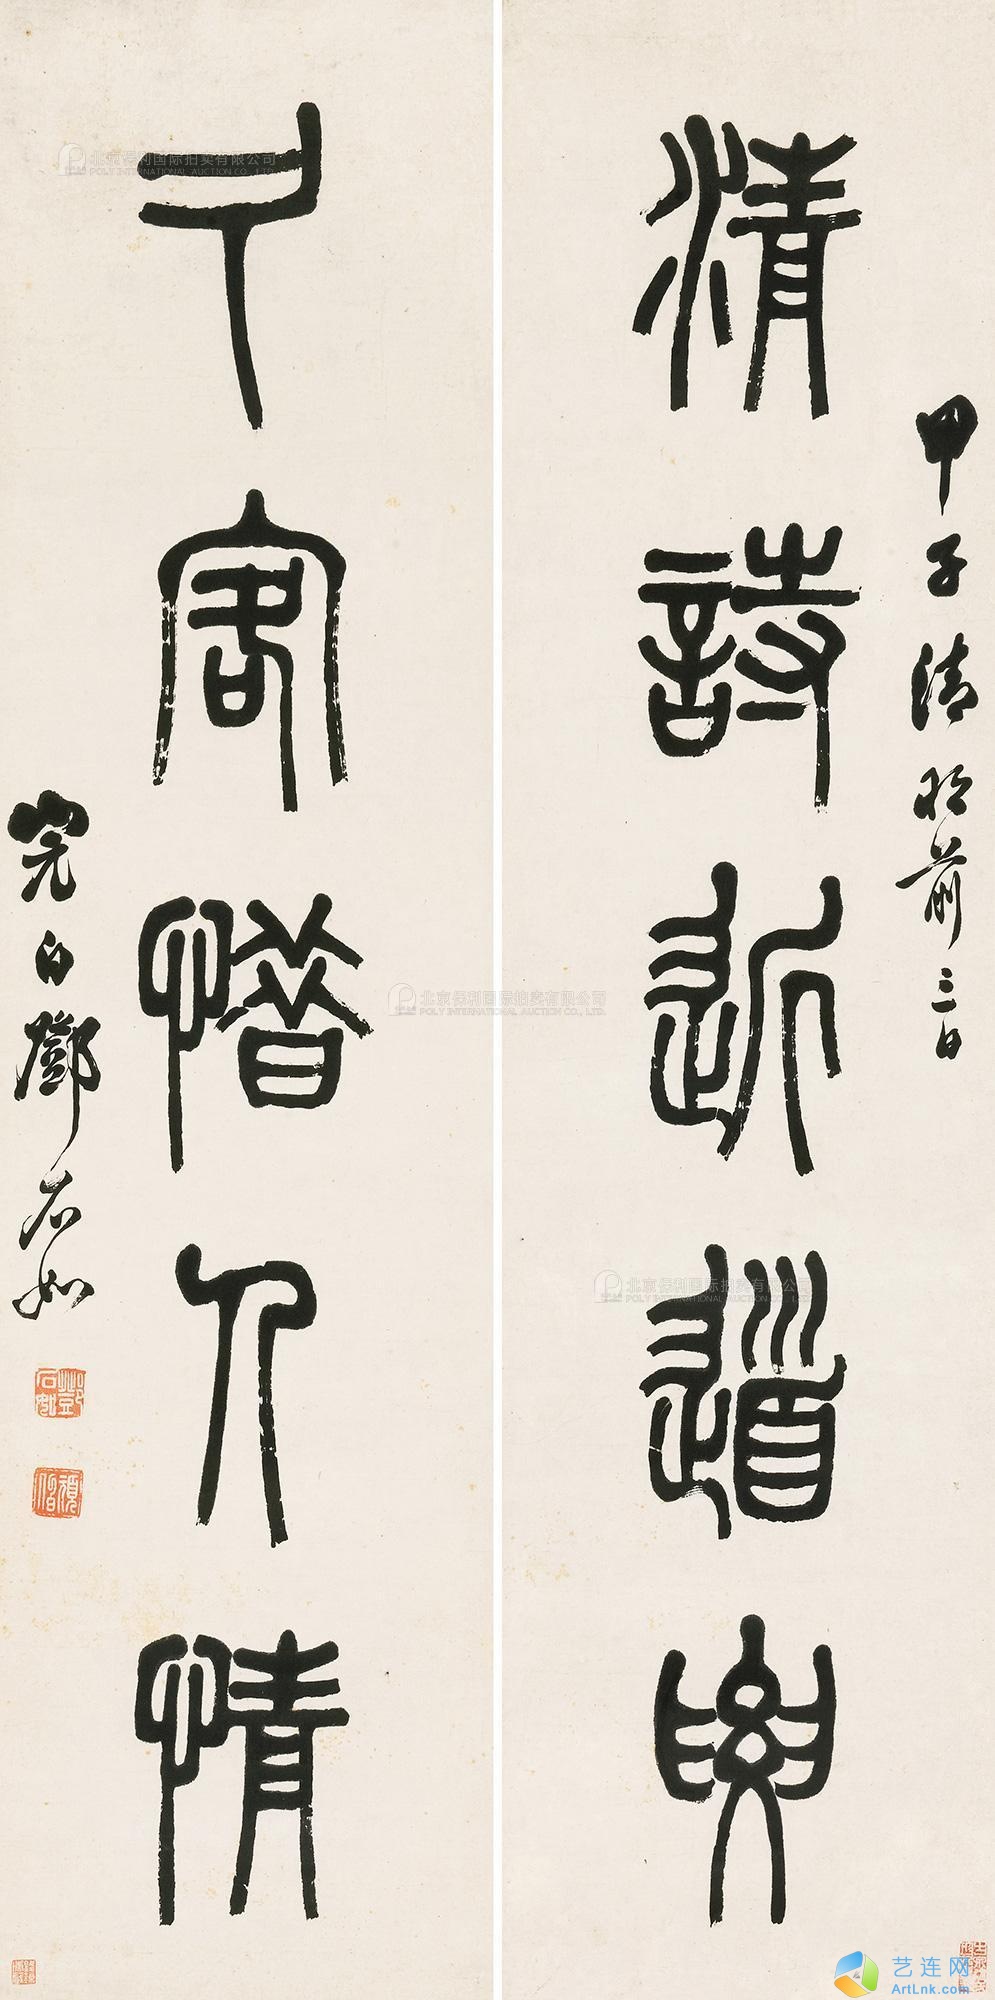 甲子清明前三日
清詩近道要
久客惜人情
完白鄧石如
鄧石如
頑伯
北京保利国际拍卖有限公司
POLY INTERNATIONAL AUCTION CO., LTD.
北京保利国际拍卖有限公司
POLY INTERNATIONAL AUCTION CO., LTD.
北京保利国际拍卖有限公司
POLY INTERNATIONAL AUCTION CO., LTD.
艺连网
ArtLnk.com